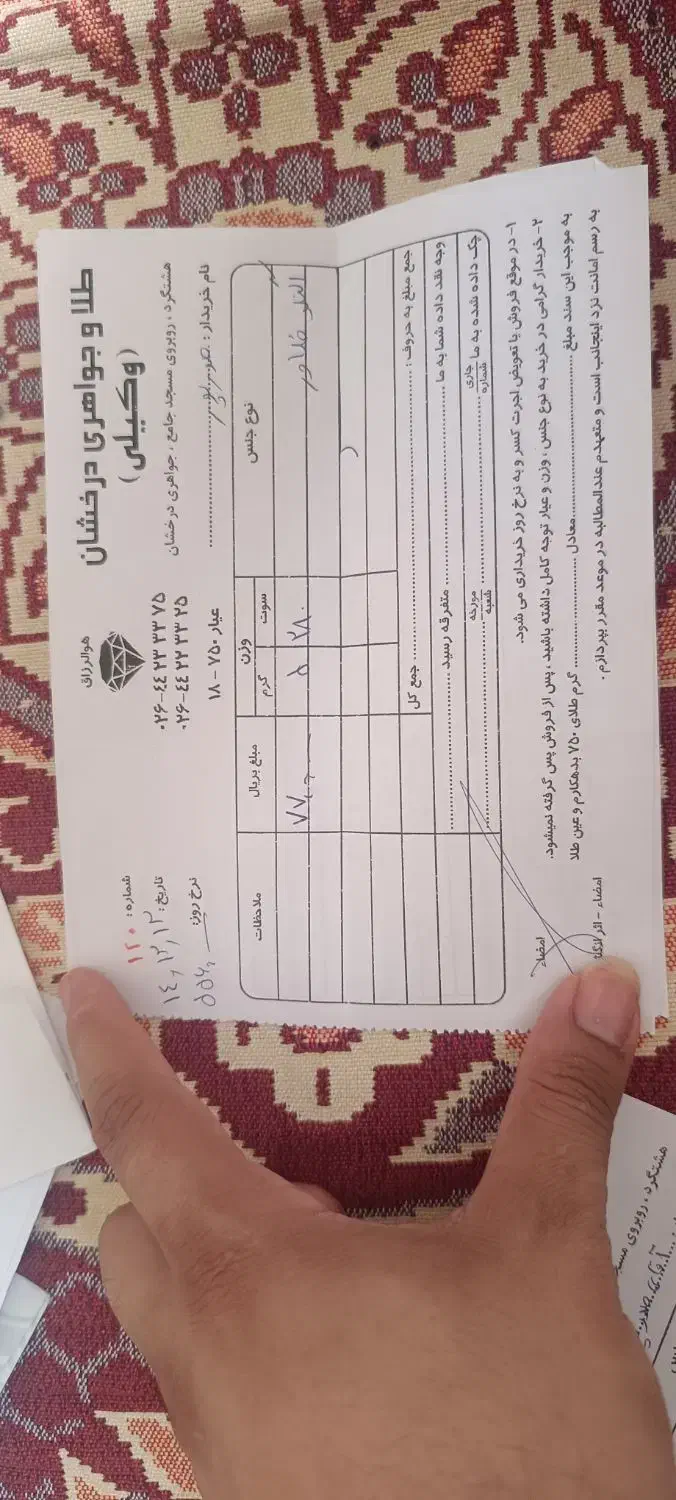 هوالرزاق
طلا و جواهری درخشان
(وکیلی)
شماره: ۱۲۰
هشتگرد، روبروی مسجد جامع، جواهری درخشان
۰۲۶-۴۴ ۲۳ ۳۳ ۷۵
۰۲۶-۴۴ ۲۲ ۳۳ ۲۵
تاریخ:
نام خریدار:
عیار ۷۵۰ - ۱۸
نرخ روز:
نوع جنس
وزن
سوت
گرم
مبلغ بریال
ملاحظات
النگو
۲۸۰
۵
جمع مبلغ به حروف:
جمع کل
وجه نقد داده شما به ما
متفرقه رسید
چک داده شده به ما
جاری
شماره
مورخه
شعبه
۱- در موقع فروش یا تعویض اجرت کسر و به نرخ روز خریداری می شود.
۲- خریدار گرامی در خرید به نوع جنس، وزن و عیار توجه کامل داشته باشید، پس از فروش پس گرفته نمیشود.
به موجب این سند مبلغ معادل گرم طلای ۷۵۰ بدهکارم و عین طلا
به رسم امانت نزد اینجانب است و متعهدم عندالمطالبه در موعد مقرر بپردازم.
امضاء
امضاء - اثر
هشتگرد، روبروی